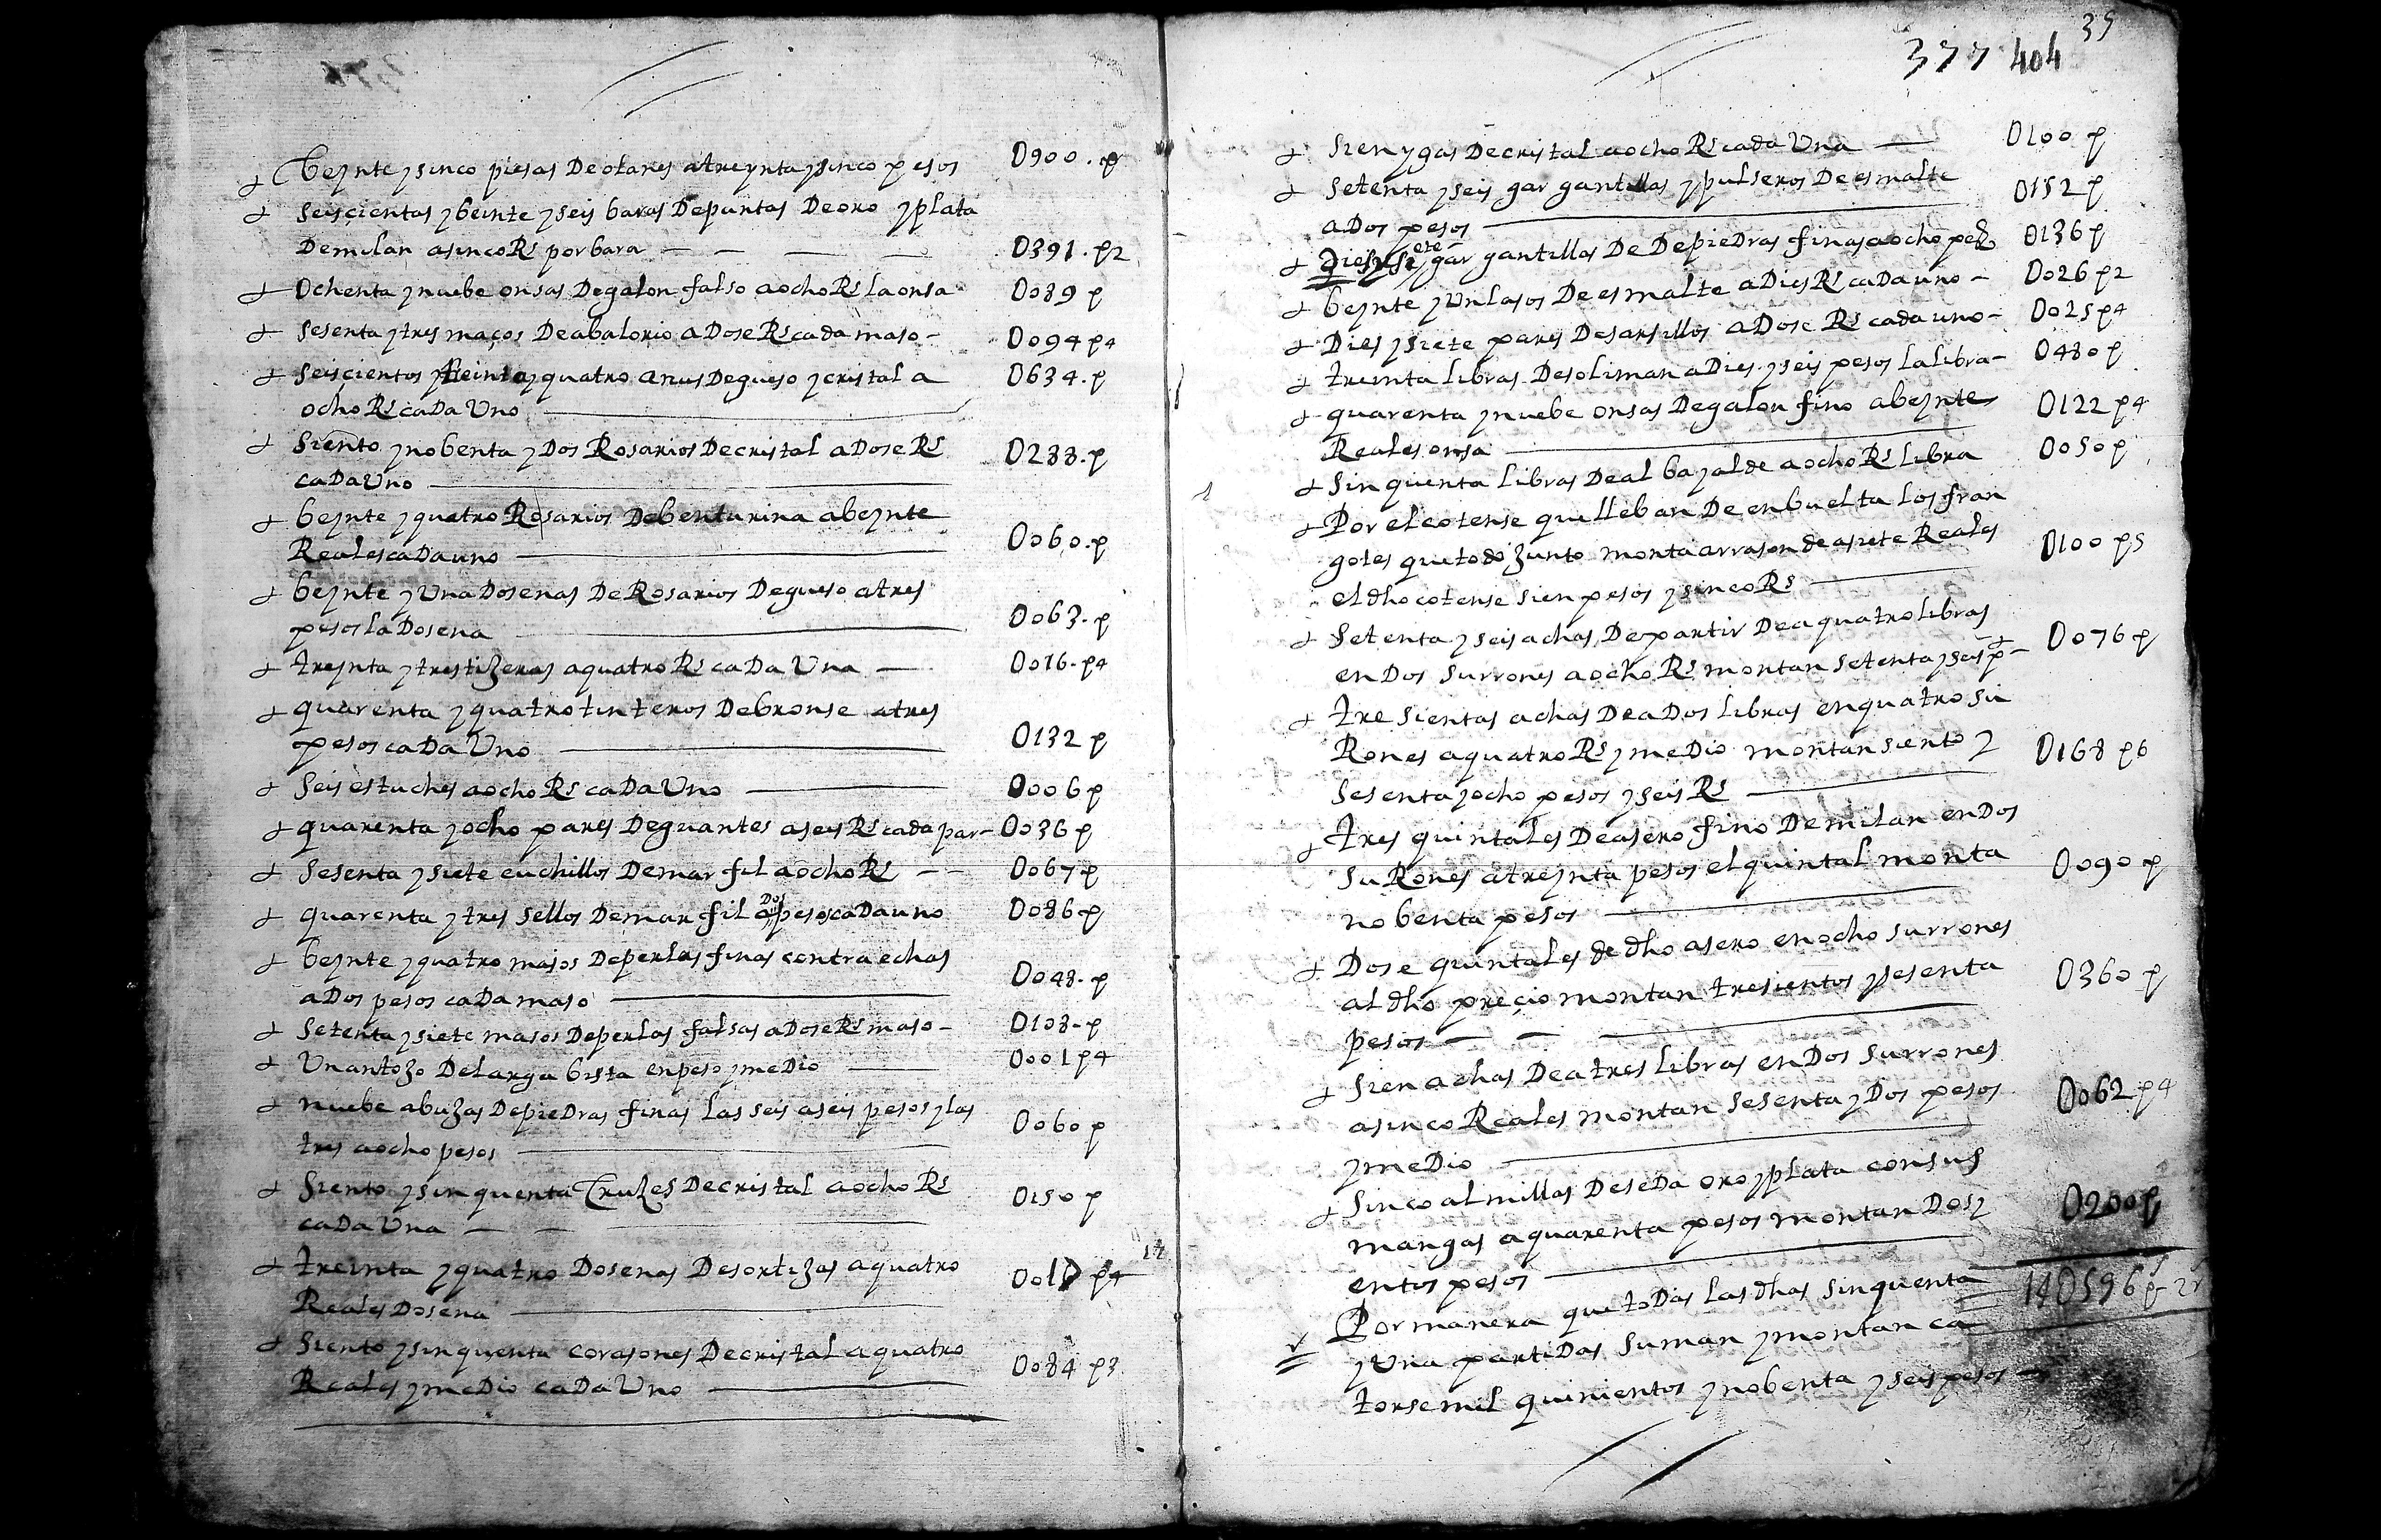 + beynte y sinco piesas De olanes a treynta y sinco pesos 0900. p
+ seiscientas y beinte y seis baras De puntas De oro y plata
De milan a sinco Rs por bara 0391. p2
+ Ochenta y nuebe onsas De galon falso a ocho Rs la onsa 0089 p
+ Sesenta y tres maços De abalorio a Dose Rs cada maso 0094 p4
+ Seiscientos y treinta y quatro anus De gueso y cristal a 0634. p
ocho Rs caDa Uno
+ Siento y nobenta y Dos Rosarios De cristal a Dose Rs 0288. p
caDa Uno
+ beynte y quatro Rosarios De benturina a beynte
Reales caDa uno 0060. p
+ beynte y Una Dosenas De Rosarios De gueso a tres
pesos la Dosena 0063. p
+ treynta y tres tizeras a quatro Rs caDa Una 0016. p4
+ quarenta y quatro tinteros De bronse a tres
pesos caDa Uno 0132 p
+ Seis estuches a ocho Rs caDa Uno 0006 p
+ quarenta y ocho pares De guantes a seis Rs cada par 0036 p
+ Sesenta y siete cuchillos De marfil a ocho Rs 0067 p
+ quarenta y tres sellos De marfil a Dos pesos caDa uno 0086 p
+ beynte y quatro masos De perlas finas contra echas
a Dos pesos caDa maso 0048. p
+ Setenta y siete masos De perlas falsas a Dose Rs maso 0108 p
+ Un antozo De larga bista en peso y meDio 0001 p4
+ nuebe abuzas De pieDras finas las seis a seis pesos y las
tres a ocho pesos 0060 p
+ Siento y sinquenta Cruzes De cristal a ocho Rs 0150 p
caDa Una
+ treinta y quatro Dosenas De sortizas a quatro 0017 p4
Reales Dosena
+ Siento y sinquenta corasones De cristal a quatro
Reales y meDio caDa Uno 0084 p3
35
377 404
+ Sien ygas De cristal a ocho Rs cada Una 0100 p
+ Setenta y seis gargantillas y pulseros De esmalte 0152 p
a Dos pesos
+ Dies y siete gargantillas De De pieDras finas a ocho pesos 0136 p
+ beynte y Un lasos De esmalte a Dies Rs caDa uno 0026 p2
+ Dies y siete pares De sarsillos a Dose Rs cada uno 0025 p4
+ treinta libras De soliman a Dies y seis pesos la libra 0480 p
+ quarenta y nuebe onsas De galon fino a beynte
Reales onsa 0122 p4
+ Sinquenta libras De albayalde a ocho Rs libra 0050 p
+ Por el cotense qu lleban De enbuelta los fran
gotes que todo Junto monta a rrason de a siete Reales
el dho cotense sien pesos y sinco Rs 0100 p5
+ Setenta y seis achas De partir De a quatro libras
en Dos surrones a ocho Rs montan setenta y seis ps 0076 p
+ tresientas achas De a Dos libras en quatro su
Rones a quatro Rs y meDio montan siento y 0168 p6
sesenta y ocho pesos y seis Rs
+ tres quintales De asero fino De milan en Dos
suRones a treynta pesos el quintal monta 0090 p
nobenta pesos
+ Dose quintales de dho asero en ocho surrones
al dho preçio montan tresientos y sesenta 0360 p
pesos
+ Sien achas De a tres libras en Dos surrones
a sinco Reales montan sesenta y Dos pesos 0062 p4
y meDio
+ Sinco almillas De seDa oro y plata con sus
mangas a quarenta pesos montan Dosi 0200 p
entos pesos
Por manera que toDas las dhas sinquenta 14U596 ps 2 r
y Una partiDas suman y montan ca
torse mil quinientos y nobenta y seis pesos